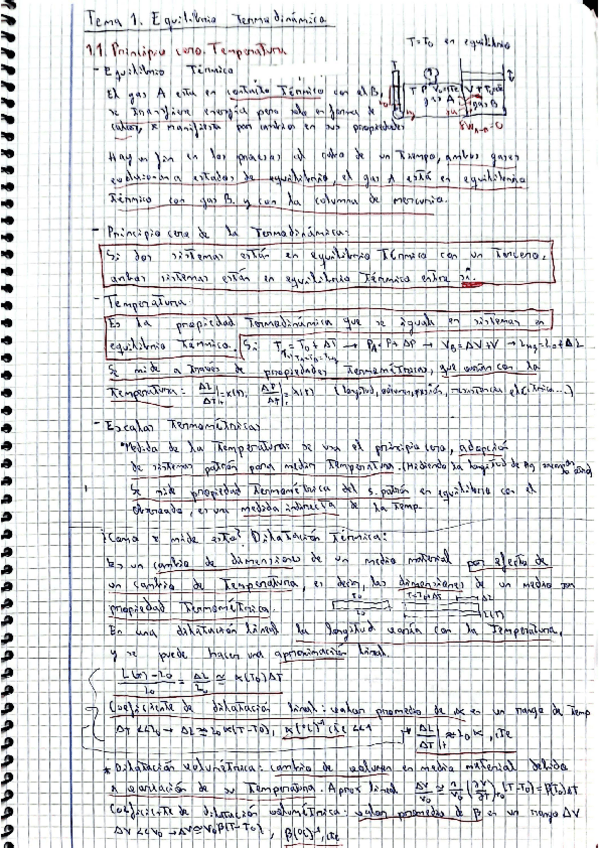 Tema 1. Equilibrio Termodinámico
1.1. Principio cero. Temperatura
T=T₀ en equilibrio
- Equilibrio Térmico
El gas A esta en contacto Térmico con al B,
se transfiere energía pero solo en forma de
calor, se manifiesta por cambios en sus propiedades
gas A
gas B
Hay un fin en los procesos al cabo de un Tiempo, ambos gases
evolucionan a estados de equilibrio, el gas A está en equilibrio
Térmico con gas B, y con la columna de mercurio.
- Principio cero de la Termodinámica:
Si dos sistemas están en equilibrio Térmico con un Tercero,
ambos sistemas están en equilibrio Térmico entre sí.
- Temperatura
Es la propiedad Termodinámica que se iguala en sistemas en
equilibrio Térmico. Si: T = T₀ + ΔT → P + ΔP → + ΔV → L₀ + ΔL
Se mide a través de propiedades Termométricas, que varían con la
Temperatura: (longitud, volumen, presión, resistencia eléctrica...)
- Escalas Termométricas:
*Medida de la Temperatura: se usa el principio cero, adopción
de sistemas patrón para medir Temperatura. (Midiendo la longitud de
Se mide propiedad Termométrica del s. patrón en equilibrio con el
observado, es una medida indirecta de la Temp.
¿Como se mide esto? Dilatación Térmica:
Es un cambio de dimensiones de un medio material por efecto de
un cambio de Temperatura, es decir, las dimensiones de un medio son
propiedad Termométrica.
En una dilatación lineal la longitud varía con la Temperatura,
y se puede hacer una aproximación lineal.
L(T)-L₀/L₀ = ΔL/L₀ ≅ α(T₀)ΔT
Coeficiente de dilatación lineal: valor promedio de α en un rango de Temp
ΔL ≅ L₀α(T-T₀), α(ºC)⁻¹ cte <<1
* Dilatación volumétrica: cambio de volumen en medio material debido
a variación de su Temperatura. Aprox lineal ΔV/V₀ ≅ 1/V₀ (∂V/∂T) (T-T₀) = β(T₀)ΔT
Coeficiente de dilatación volumétrica: valor promedio de β en un rango ΔV
ΔV << V₀ → ΔV ≅ V₀β(T-T₀), β(ºC)⁻¹, cte